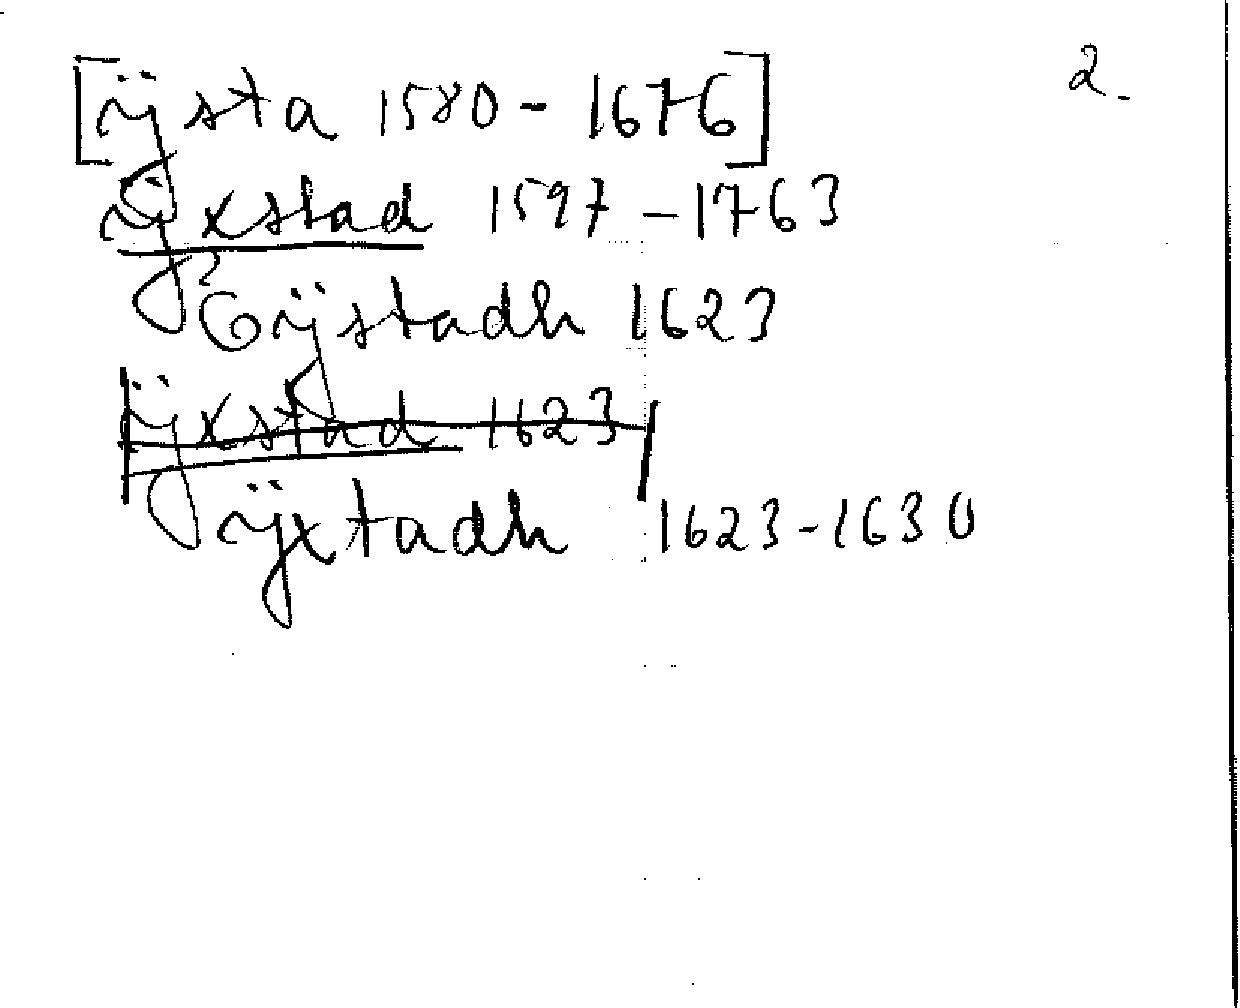 2.
[ÿsta 1580 - 1676]
ÿxstad 1597 - 1763
ÿstadh 1623
ÿxstad 1623
ÿxtadh 1623-1630